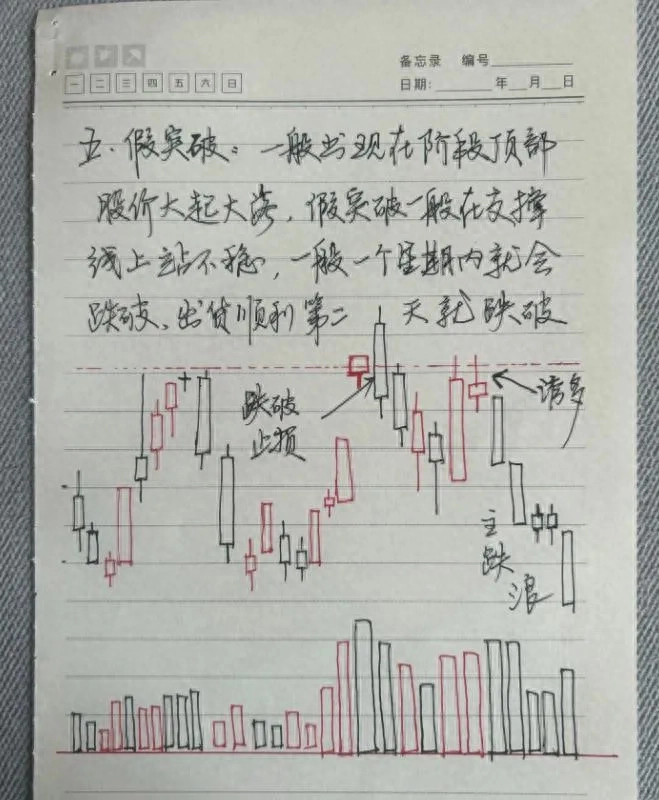 备忘录 编号
一 二 三 四 五 六 日
日期: 年 月 日
五.假突破:一般出现在阶段顶部
股价大起大落,假突破一般在支撑
线上站不稳,一般一个星期内就会
跌破、出货顺利第二 天就跌破
跌破
止损
诱多
主
跌
浪